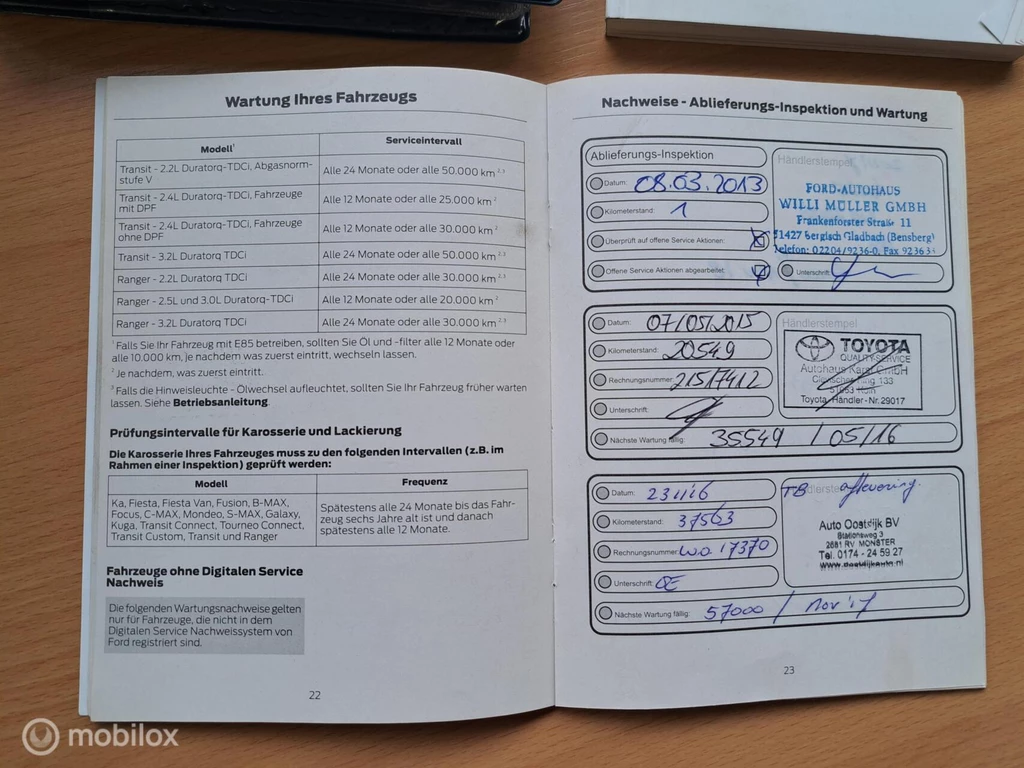 Wartung Ihres Fahrzeugs
Modell¹ Serviceintervall
Transit - 2.2L Duratorq-TDCi, Abgasnorm-
stufe V
Alle 24 Monate oder alle 50.000 km ²,³
Transit - 2.4L Duratorq-TDCi, Fahrzeuge
mit DPF
Alle 12 Monate oder alle 25.000 km ²
Transit - 2.4L Duratorq-TDCi, Fahrzeuge
ohne DPF
Alle 12 Monate oder alle 30.000 km ²
Transit - 3.2L Duratorq TDCi Alle 24 Monate oder alle 50.000 km ²,³
Ranger - 2.2L Duratorq TDCi Alle 24 Monate oder alle 30.000 km ²,³
Ranger - 2.5L und 3.0L Duratorq-TDCi Alle 12 Monate oder alle 20.000 km ²
Ranger - 3.2L Duratorq TDCi Alle 24 Monate oder alle 30.000 km ²,³
¹ Falls Sie Ihr Fahrzeug mit E85 betreiben, sollten Sie Öl und -filter alle 12 Monate oder
alle 10.000 km, je nachdem was zuerst eintritt, wechseln lassen.
² Je nachdem, was zuerst eintritt.
³ Falls die Hinweisleuchte - Ölwechsel aufleuchtet, sollten Sie Ihr Fahrzeug früher warten
lassen. Siehe Betriebsanleitung.
Prüfungsintervalle für Karosserie und Lackierung
Die Karosserie Ihres Fahrzeuges muss zu den folgenden Intervallen (z.B. im
Rahmen einer Inspektion) geprüft werden:
Modell Frequenz
Ka, Fiesta, Fiesta Van, Fusion, B-MAX,
Focus, C-MAX, Mondeo, S-MAX, Galaxy,
Kuga, Transit Connect, Tourneo Connect,
Transit Custom, Transit und Ranger
Spätestens alle 24 Monate bis das Fahr-
zeug sechs Jahre alt ist und danach
spätestens alle 12 Monate.
Fahrzeuge ohne Digitalen Service
Nachweis
Die folgenden Wartungsnachweise gelten
nur für Fahrzeuge, die nicht in dem
Digitalen Service Nachweissystem von
Ford registriert sind.
22
Nachweise - Ablieferungs-Inspektion und Wartung
Ablieferungs-Inspektion
Datum: 08.03.2013
Kilometerstand: 1
Überprüft auf offene Service Aktionen:
Offene Service Aktionen abgearbeitet:
Händlerstempel
FORD-AUTOHAUS
WILLI MÜLLER GMBH
Frankenforster Straße 11
51427 Bergisch Gladbach (Bensberg)
Telefon: 02204/9236-0, Fax 923633
Unterschrift:
Datum: 07/05/2015
Kilometerstand: 20549
Rechnungsnummer: 21517412
Unterschrift:
Nächste Wartung fällig: 35549 / 05/16
Händlerstempel
TOYOTA
QUALITY-SERVICE
Autohaus Karst GmbH
133
51063 Köln
Toyota-Händler-Nr. 29017
Datum: 231116
Kilometerstand: 37563
Rechnungsnummer: W.O. 17370
Unterschrift: OE
Nächste Wartung fällig: 57000 / nov '17
Händlerstempel
TB aflevering.
Auto Oostdijk BV
Stationsweg 3
2681 RV MONSTER
Tel. 0174 - 24 59 27
www.oostdijkauto.nl
23
mobilox